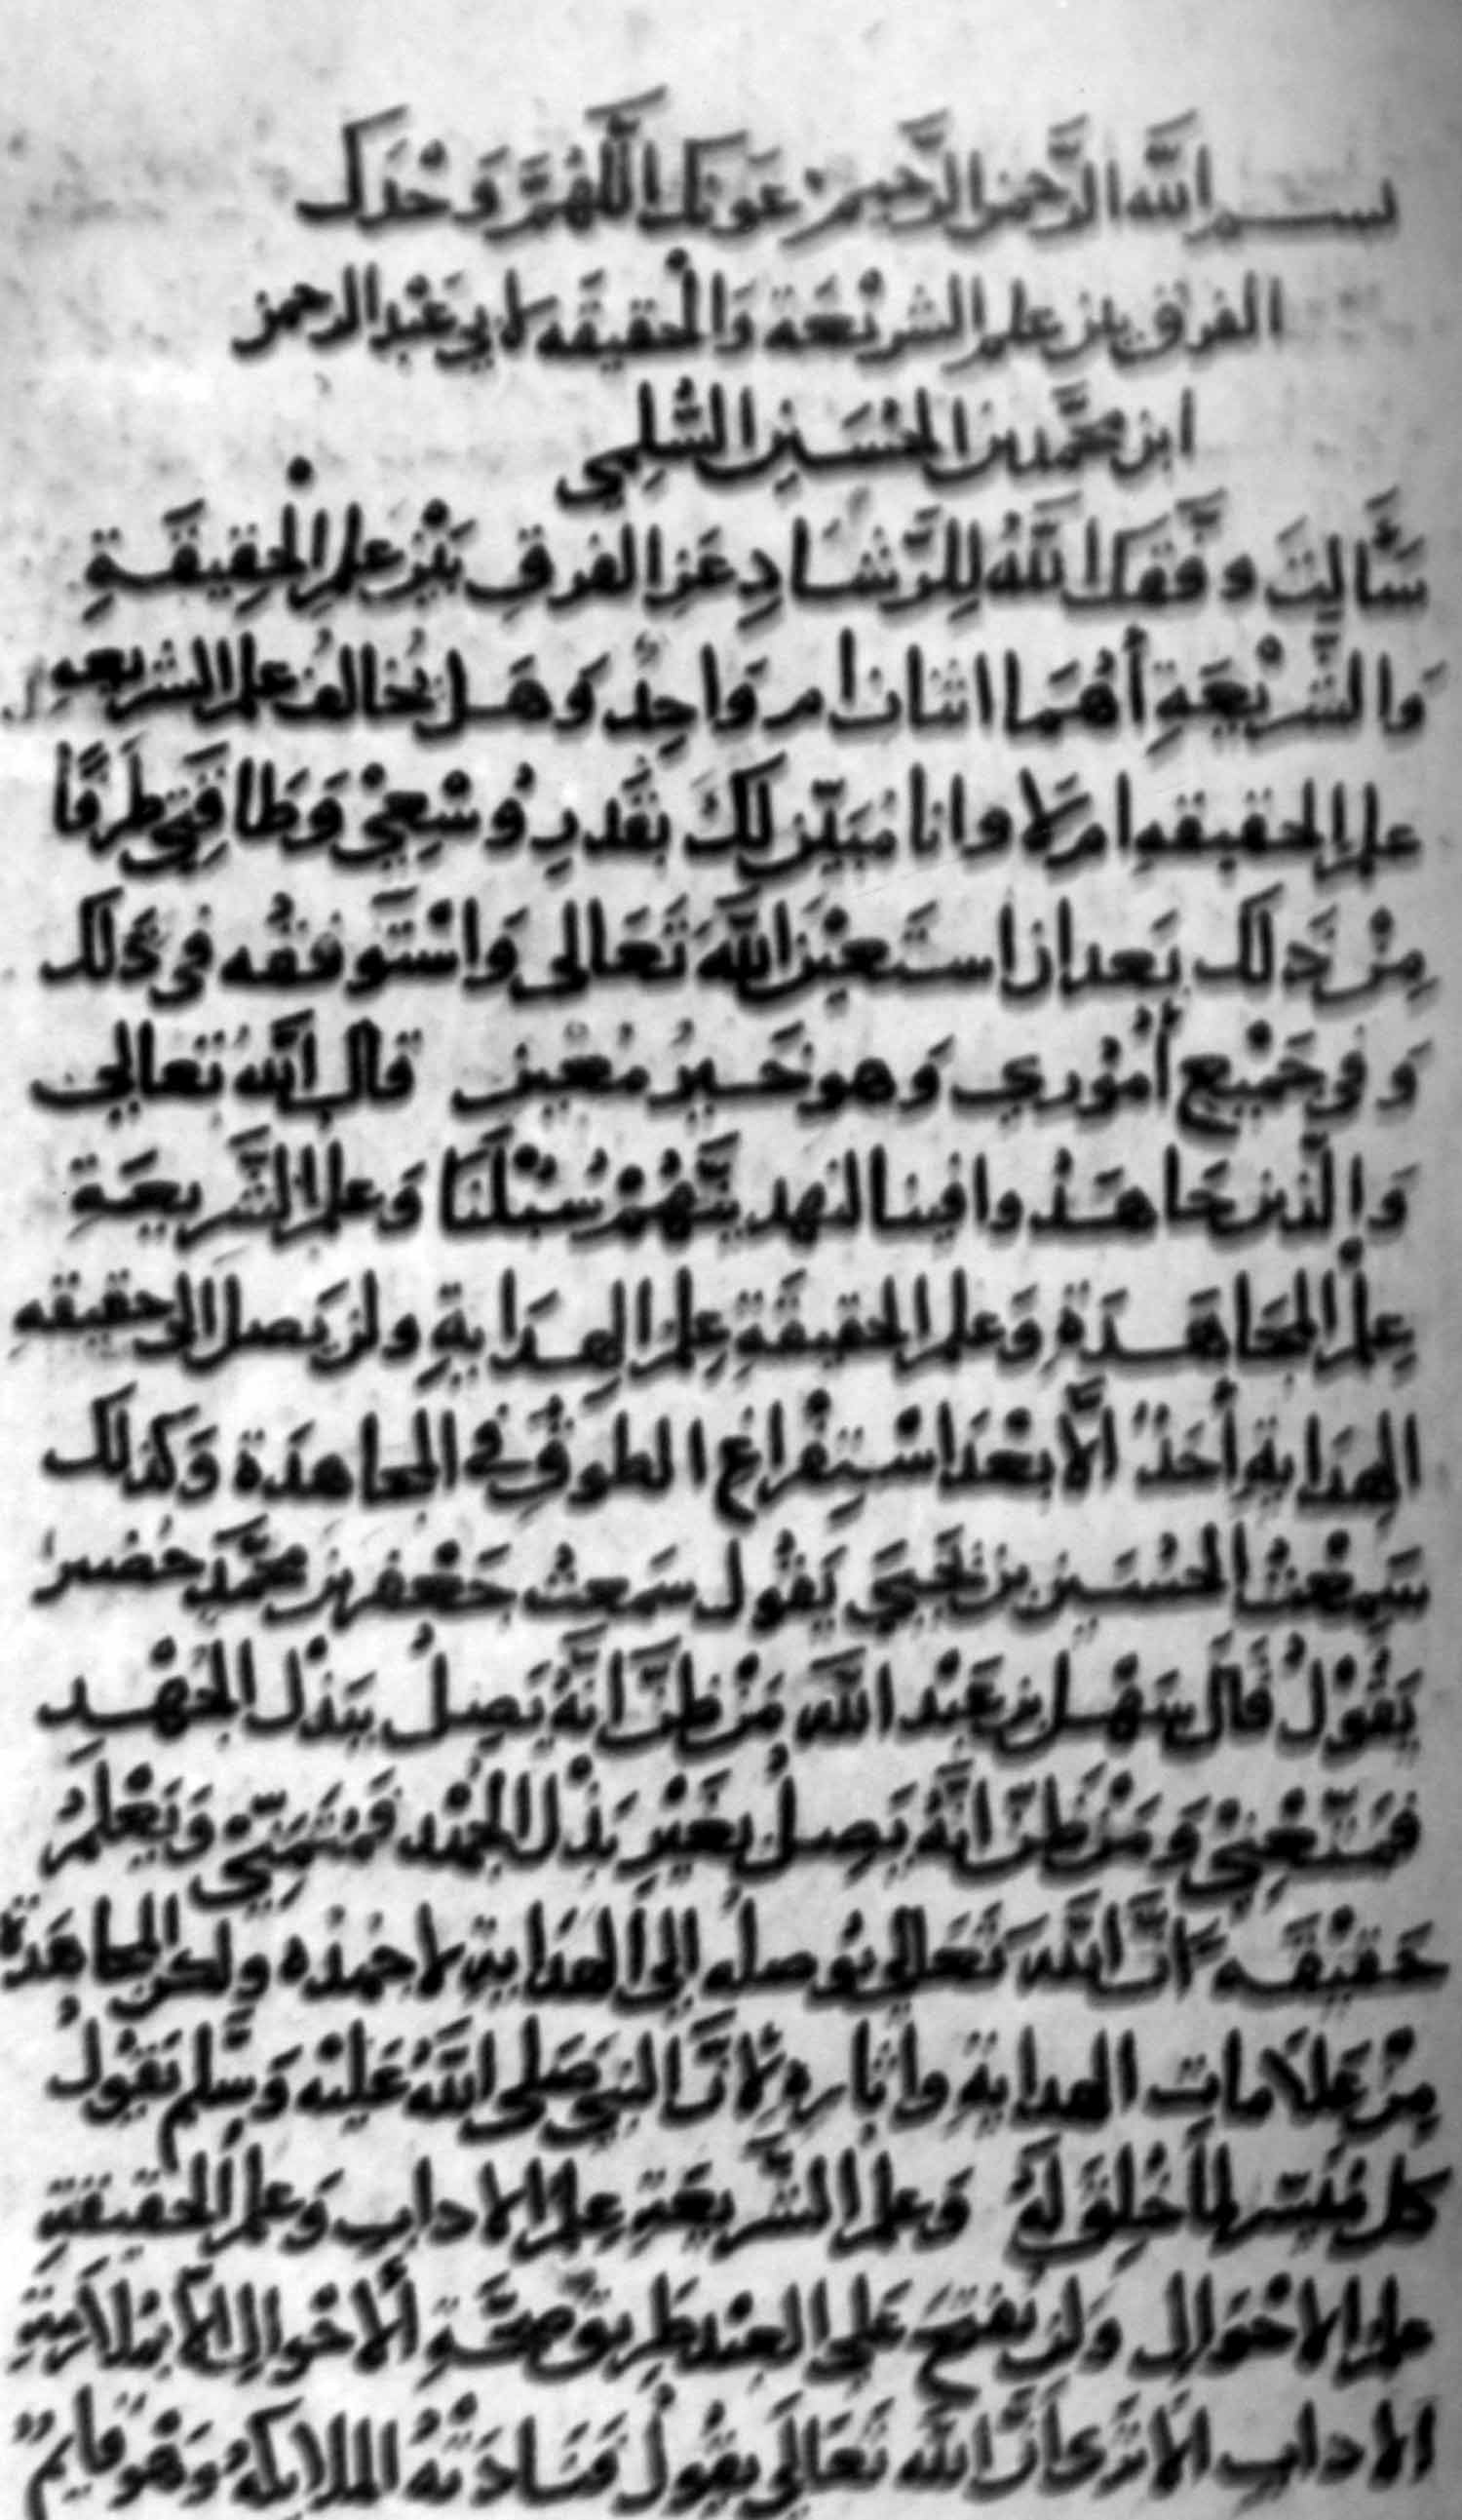 بسم الله الرحمن الرحيم عونك اللهم وحدك
الفرق بين علم الشريعة والحقيقه لابي عبد الرحمن
ابن محمد بن الحسين السلمي
سَأَلتَ وفّقك اللهُ لِلرّشادِ عَن الفرقِ بَيْن علمِ الحِقيقَةِ
وَالشّريْعَةِ أهُمَا اثنان ام وَاحِدٌ وَهَل يُخالفُ علم الشريعه
علم الحقيقه ام لا وانا مُبَيّن لكَ بقَدرِ وُسْعِيْ وَطَاقَتِي طرَفًا
مِنْ ذَلك بَعد ان استَعيْنَ اللهَ تَعَالى وَاسْتَوفقُه في ذلك
وَفي جَمْيع أمُوْري وَهو خَيرُ مُعْين قال اللهُ تعالى
وَالّذين جَاهَدُوا فينا لنهدينّهُمْ سُبْلَنَا وَعلم الشّريعَةِ
عِلمُ المجَاهَدَةِ وَعلم الحقيقَةِ عِلمُ الهدَايةِ ولن يَصل الى حقيقه
الهِدَايةِ أحَدٌ الّا بعْدَ اسْتِفْراغِ الطوْقِ في المجاهدَة وَكذلك
سَمِعْتُ الحُسَين بن يَحْيَى يَقُول سَمعتُ جَعْفر بن محمّدٍ
يَقُوْلُ قَالَ سَهْل بن عَبْد اللهِ مَنْ ظنّ انّهُ يَصِلُ ببَذْل الجُهْدِ
فمُتَعَنّيْ وَمَنْ ظنّ انّهُ يَصِلُ بغَيْرِ بَذْل الجُهْد فمُتَمَنّي وَيَعْلمُ
حَقيْقَه انّ اللهَ تَعَالى يُوصله إلى الهدَاية لا جهْدُه ولكن المجاهَدَة
مِنْ عَلَامات الهدايةِ واثارهِ لانّ النبيَ صَلى اللهُ عَليْه وَسَلم يَقُوْلُ
كل مُيَسّر لما خُلِقَ لهُ وَعلم الشّريعَةِ عِلمُ الادابِ وَعلمُ الحقيقةِ
علم الاحْوَالِ وَلن يُفتحَ عَلى العبْد طَريق صحّةِ الأحْوالِ الّا بمُلازمةِ
الادابِ الَا تَرى انّ الله تَعَالى يقُولُ فنَادَتْهُ الملايكةُ وَهْوَ قايمٌ